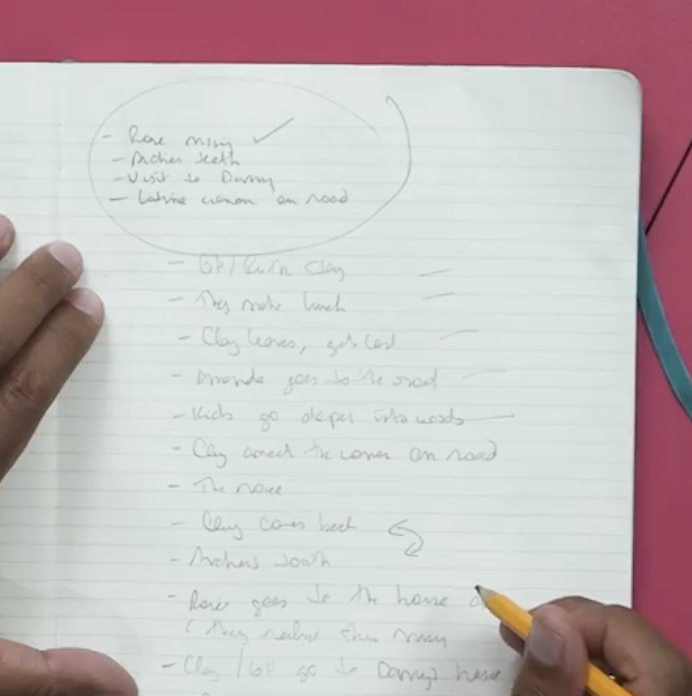 - Rose missing
- Archies teeth
- Visit to Danny
- Latine woman on road
- GH / Ruth stay
- They make lunch
- Clay leaves, gets lost
- Amanda goes to the road
- Kids go deeper into woods
- Clay the woman on road
- The noise
- Clay comes back
- Archies tooth
- Rose goes to the house
( They realise shes missing
- Clay / GH go to Dannys house